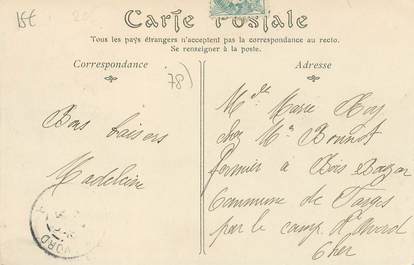 15€
Carte Postale
Tous les pays étrangers n'acceptent pas la correspondance au recto.
Se renseigner à la poste.
Correspondance
Adresse
78)
Bons baisers
Madeleine
Melle Marie
chez Mr Bonnot
fermier à Bois
Commune de Farges
par le camp d'Avord
Cher